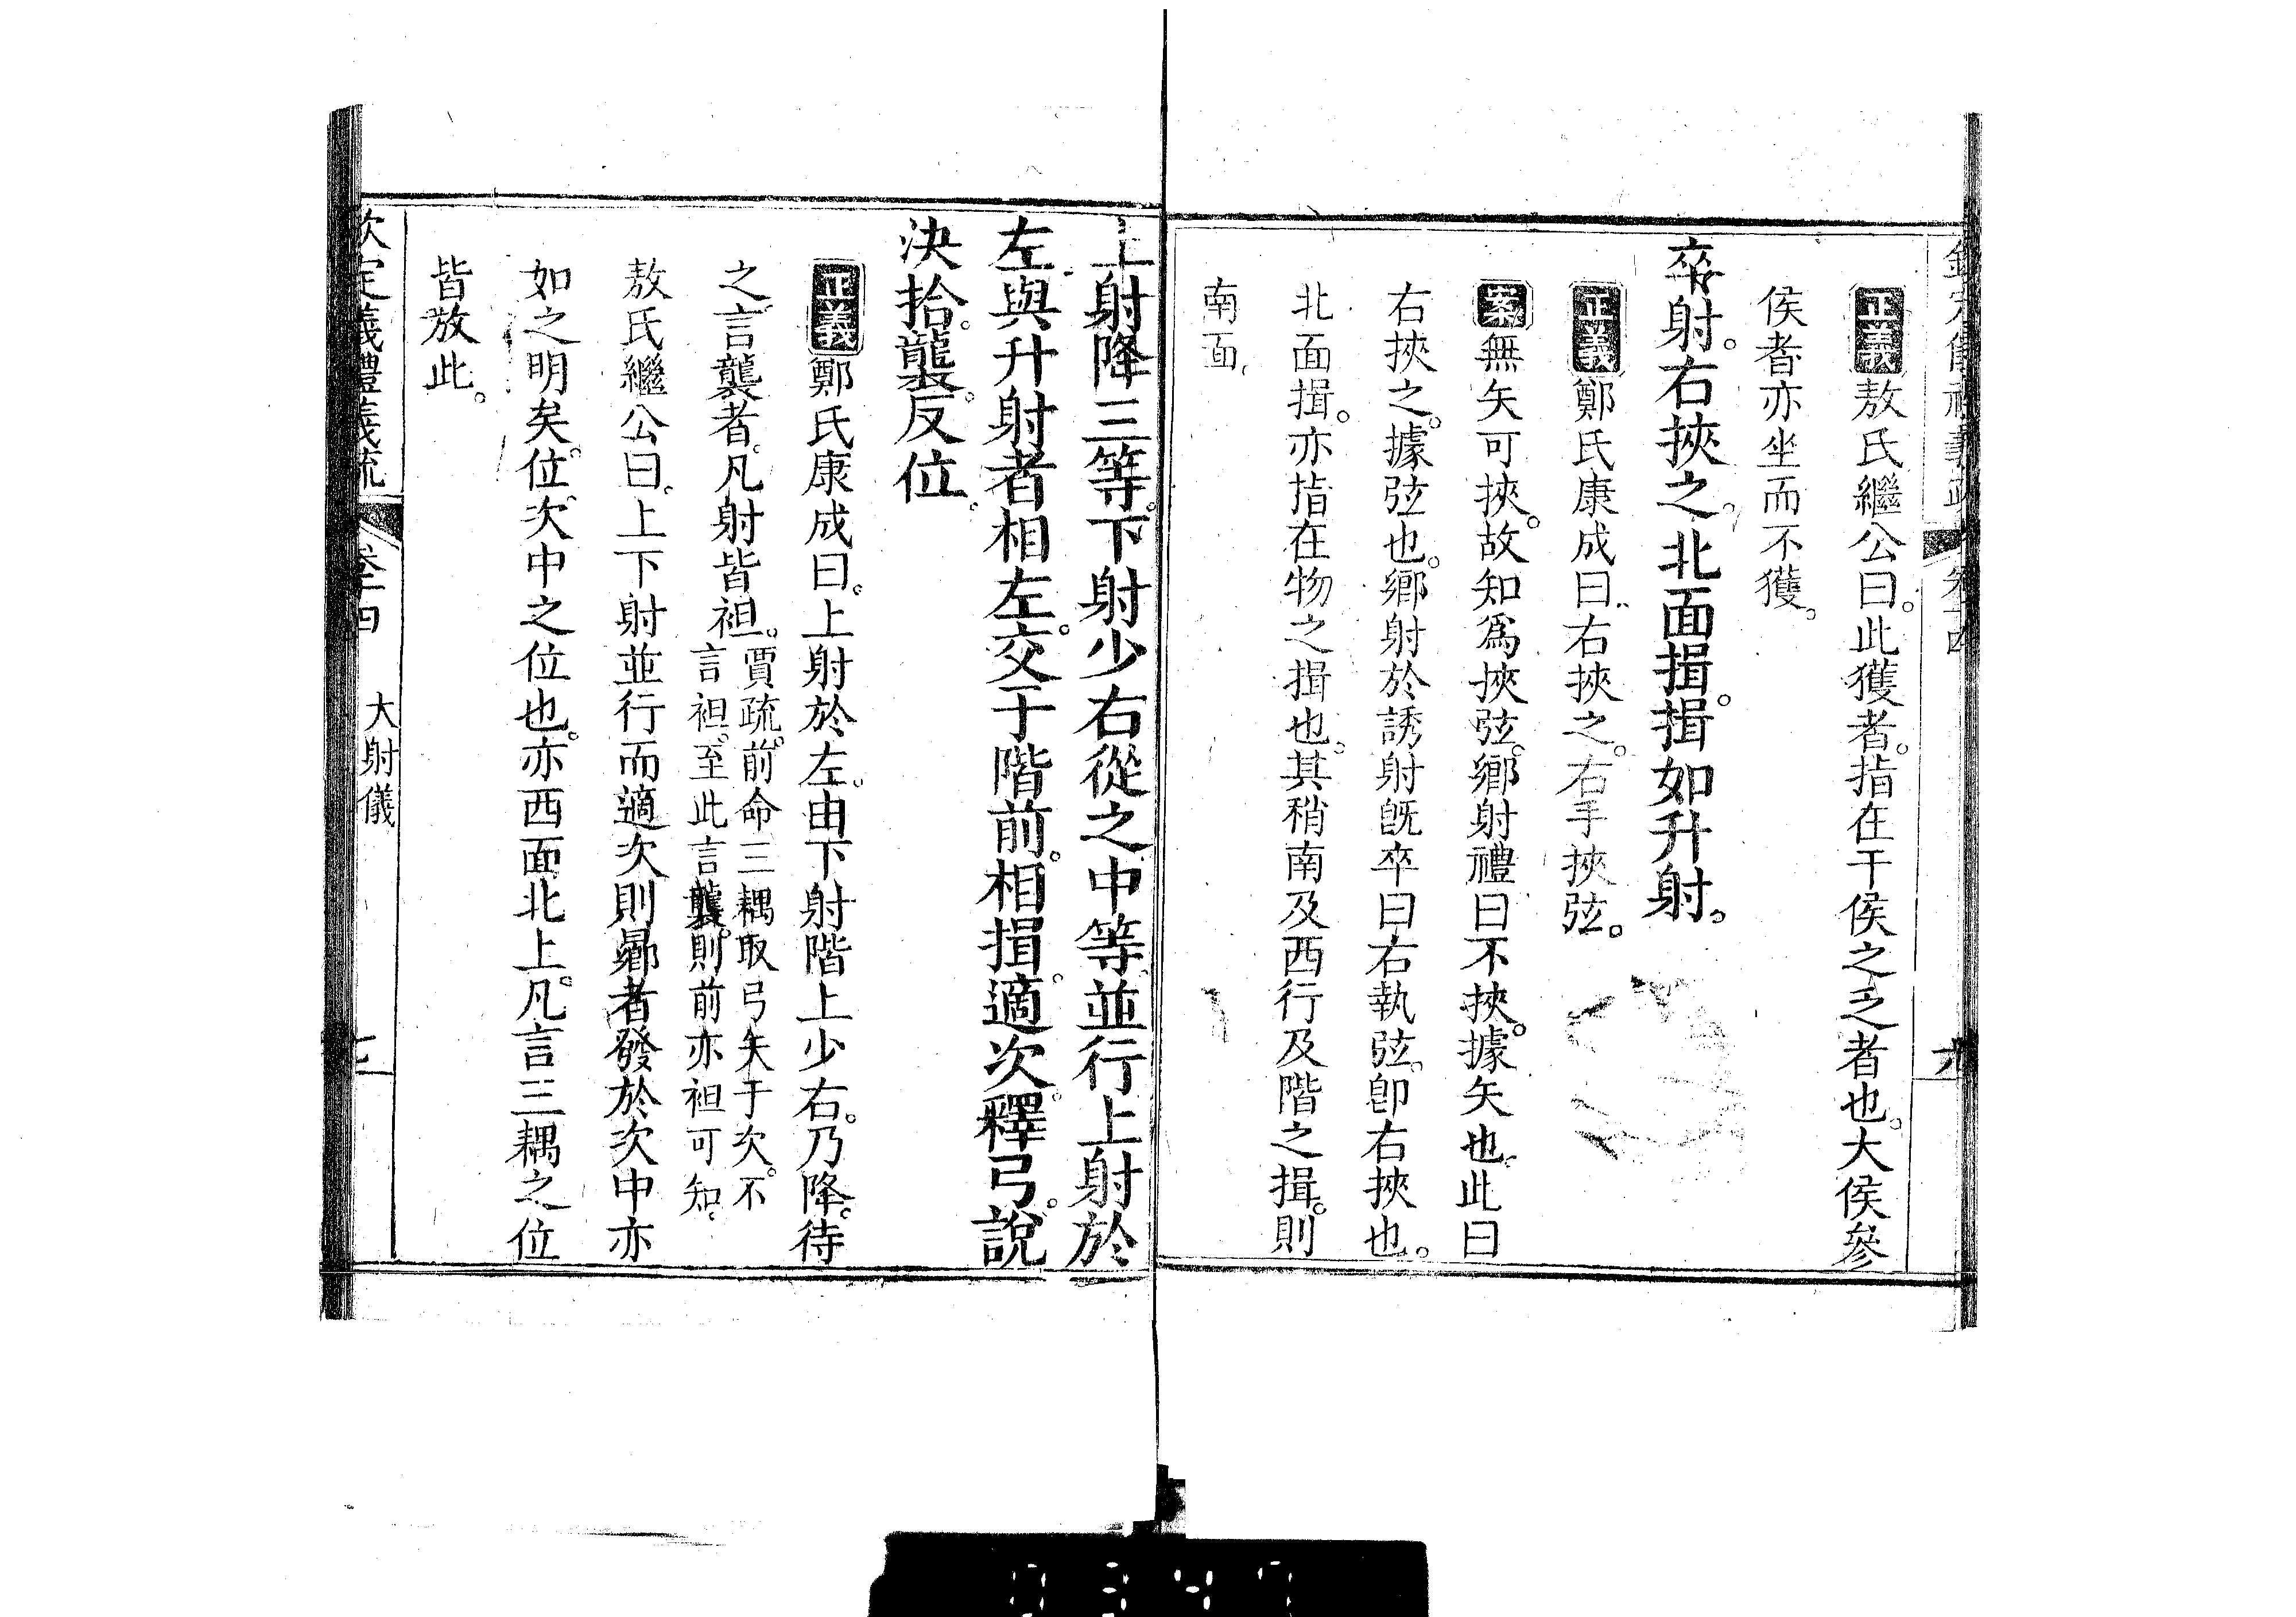 欽定儀禮義疏 卷十四
正義敖氏繼公曰此獲者指在干侯之乏者也大侯參
侯者亦坐而不獲
卒射右挾之北面揖揖如升射
正義鄭氏康成曰右挾之右手挾弦
案無矢可挾故知爲挾弦鄉射禮曰不挾據矢也此曰
右挾之據弦也鄉射於誘射旣卒曰右執弦卽右挾也
北面揖亦指在物之揖也其稍南及西行及階之揖則
南面
上射降三等下射少右從之中等並行上射於
左與升射者相左交于階前相揖適次釋弓說
決拾襲反位
正義鄭氏康成曰上射於左由下射階上少右乃降待
之言襲者凡射皆袒賈疏前命三耦取弓矢于次不
言袒至此言襲則前亦袒可知
敖氏繼公曰上下射並行而適次則曏者發於次中亦
如之明矣位次中之位也亦西面北上凡言三耦之位
皆放此
欽定儀禮義疏 卷十四 大射儀